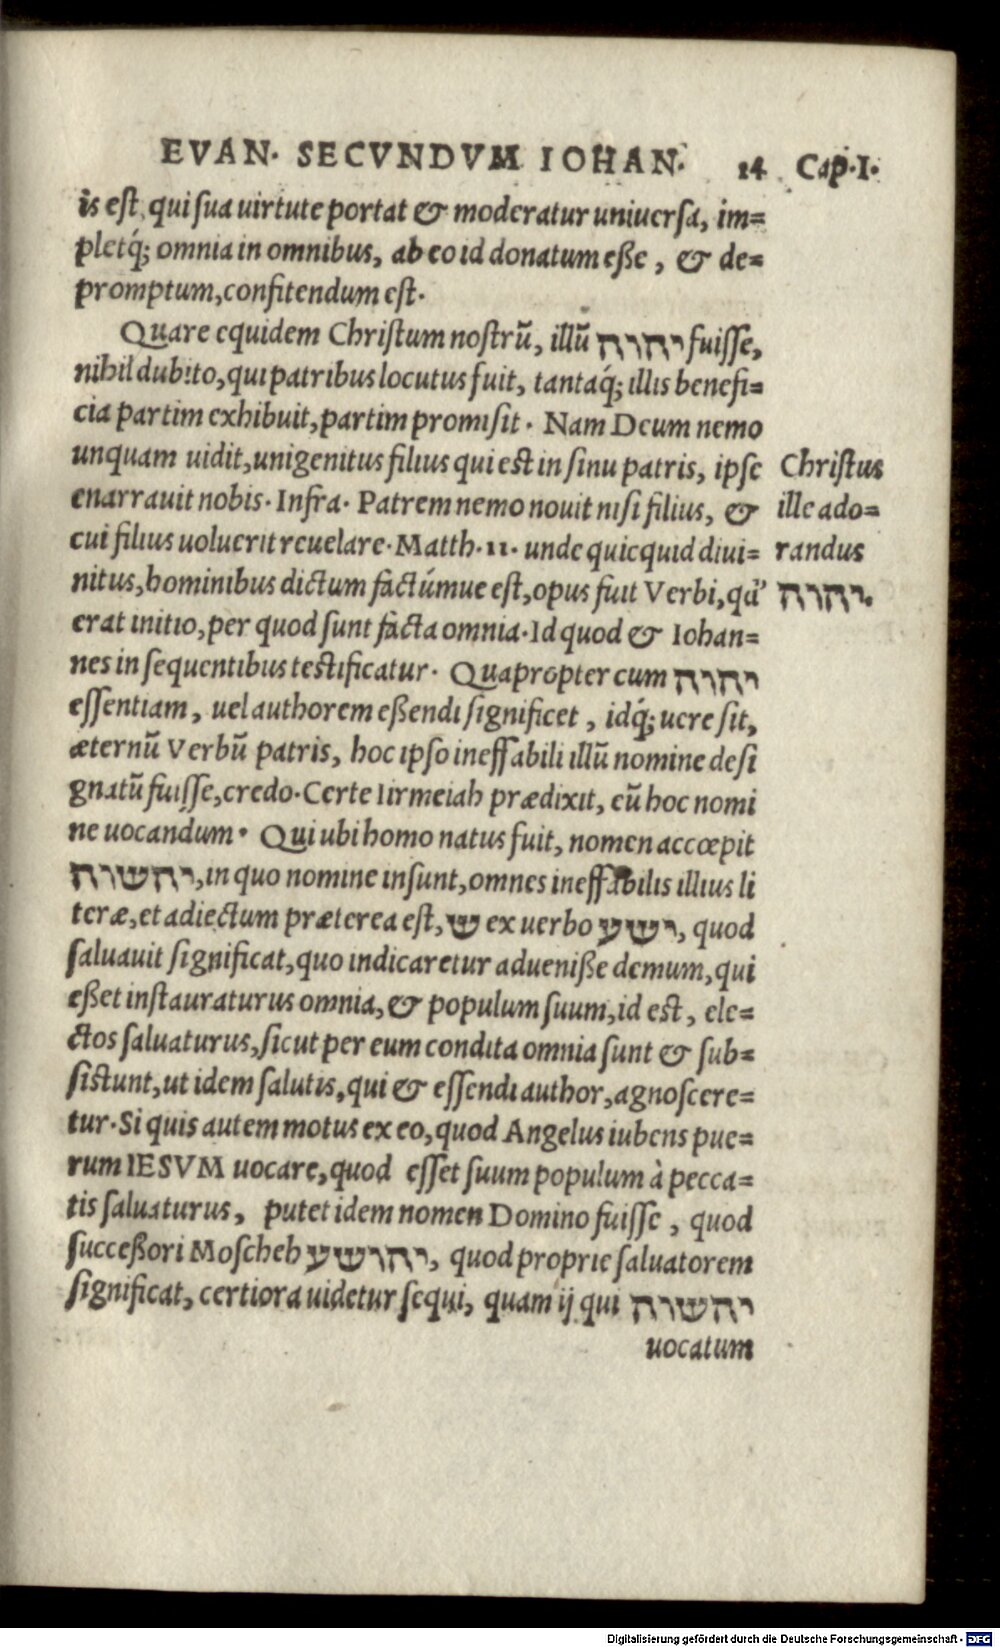 EVAN. SECVNDVM IOHAN. 14 Cap.I.
is est, qui sua uirtute portat & moderatur uniuersa, im=
pletq́; omnia in omnibus, ab eo id donatum eße, & de=
promptum, confitendum est.
Quare equidem Christum nostrū, illū יהוה fuisse,
nihil dubito, qui patribus locutus fuit, tantaq́; illis benefi=
cia partim exhibuit, partim promisit. Nam Deum nemo
unquam uidit, unigenitus filius qui est in sinu patris, ipse
enarrauit nobis. Infra. Patrem nemo nouit nisi filius, &
cui filius uoluerit reuelare. Matth. 11. unde quicquid diui=
nitus, hominibus dictum factúmue est, opus fuit Verbi, qď
erat initio, per quod sunt facta omnia. Id quod & Iohan=
nes in sequentibus testificatur. Quapropter cum יהוה
essentiam, uel authorem eßendi significet, idq́; uere sit,
æternū Verbū patris, hoc ipso ineffabili illū nomine desi
gnatū fuisse, credo. Certe Iirmeiah prædixit, eū hoc nomi
ne uocandum. Qui ubi homo natus fuit, nomen accœpit
יהשוה, in quo nomine insunt, omnes ineffabilis illius li
teræ, et adiectum præterea est, ש ex uerbo ישע, quod
saluauit significat, quo indicaretur adueniße demum, qui
eßet instauraturus omnia, & populum suum, id est, ele=
ctos saluaturus, sicut per eum condita omnia sunt & sub=
sistunt, ut idem salutis, qui & essendi author, agnoscere=
tur. Si quis autem motus ex eo, quod Angelus iubens pue=
rum IESVM uocare, quod esset suum populum à pecca=
tis saluaturus, putet idem nomen Domino fuisse, quod
succeßori Moscheh יהושע, quod proprie saluatorem
significat, certiora uidetur sequi, quam ij qui יהשוה
uocatum
Christus
ille ado=
randus
יהוה.
Digitalisierung gefördert durch die Deutsche Forschungsgemeinschaft - DFG